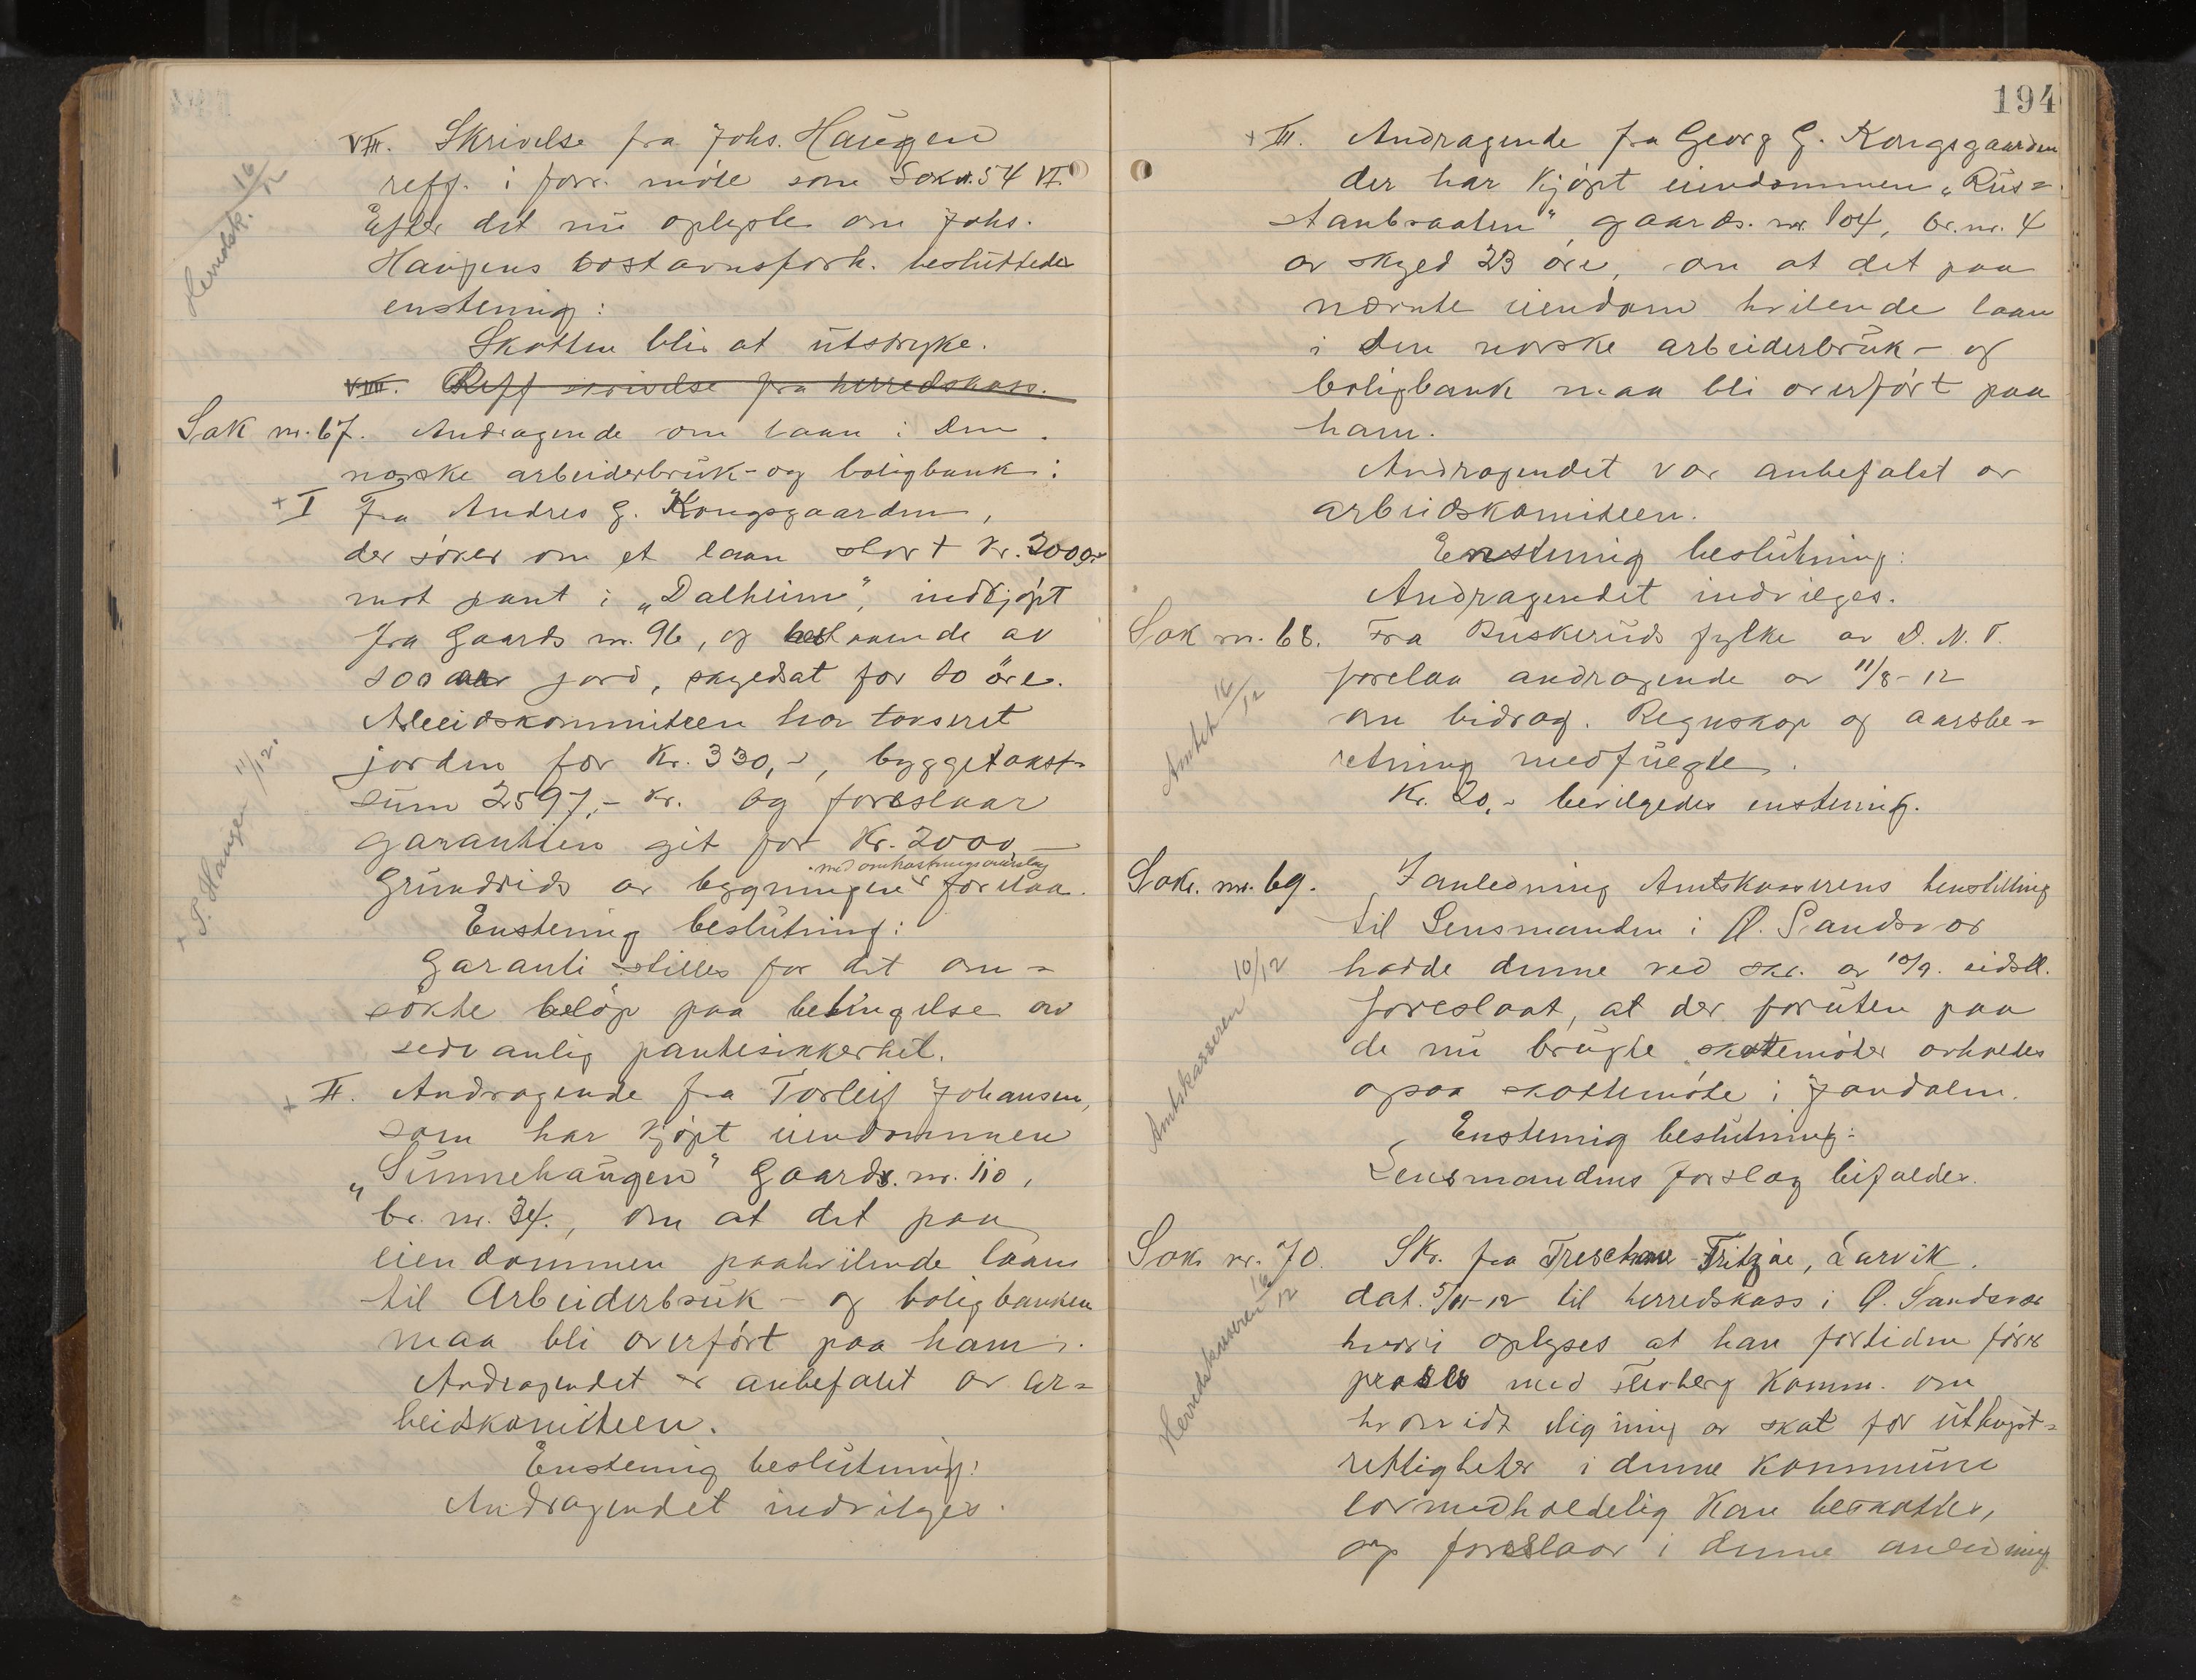 VII. Skrivelse fra Johs. Haugen
reff. i forr. møte som Sak nr. 54 VI.
Efter det nu oplyste om Johs.
Haugens bostavnsforh. besluttedes
enstemig:
Skatten blir at utstryke.
VIII. Reff skrivelse fra herredskass.
Herredsk. 16/12
Sak nr. 67. Andragende om laan i Den
norske arbeiderbruk- og boligbank:
+ I Fra Andres G. Kongsgaarden,
der søker om et laan stort kr. 2000,-
mot pant i „Dalheim", indkjøpt
fra Gaards nr. 96, og bestaaende av
jord, skyldsat for 10 øre.
Arbeidskommiteen har taxeret
jorden for Kr. 330,-, byggetakst-
sum 2597,- kr. og foreslaar
garantien git for Kr. 2000,-
Grundrids av bygningen med omkostningsoverslag forelaa.
Enstemig beslutning:
Garanti stilles for det om-
søkte beløp paa betingelse av
sedvanlig pantesikkerhet.
T. Haugen 11/12.
+ II. Andragende fra Torleif Johansen,
som har kjøpt eiendommen
„Sunnehaugen" Gaards. nr. 110,
br. nr. 34., om at det paa
eiendommen paahvilende laan
til Arbeiderbruk- og boligbanken
maa bli overført paa ham.
Andragendet er anbefalet av ar-
beidskomiteen.
Enstemig beslutning:
Andragendet indvilges.
194
+ III. Andragende fra Georg G. Kongsgaarden
der har kjøpt eiendommen „Rus-
tanbraaten", gaards. nr. 104, br. nr. 4
av skyld 23 øre, om at det paa
nævnte eiendom hvilende laan
i Den norske arbeiderbruk- og
boligbank maa bli overført paa
ham.
Andragendet var anbefalet av
arbeidskomiteen.
Enstemig beslutning:
Andragendet indvilges.
Sak nr. 68. Fra Buskeruds fylke av D. N. T.
forelaa andragende av 11/8-12
om bidrag. Regnskap og aarsbe-
retning medfulgte.
Kr. 20,- bevilgedes enstemig.
Amtet 16/12
Sak. nr. 69. I anledning Amtskassererens henstilling
til Lensmanden i Ø. Sandsvær
hadde denne ved skr. av 10/9. sidstl.
foreslaat, at der foruten paa
de nu brugte skattemøter avholdes
ogsaa skattemøte i Jondalen.
Enstemig beslutning:
Lensmandens forslag bifaldes.
Amtskasseren 10/12
Sak nr. 70. Skr. fra Treschow-Fritzøe, Larvik.
dat. 5/11-12 til herredskass i Ø. Sandsvær
hvori oplyses at han fortiden fører
proses med Flesberg Komm. om
hvorvidt ligning av skat for uthugst-
rettigheter i denne kommune
lovmedholdelig kan beskattes,
og foreslaar i denne anledning
Herredskasseren 16/12